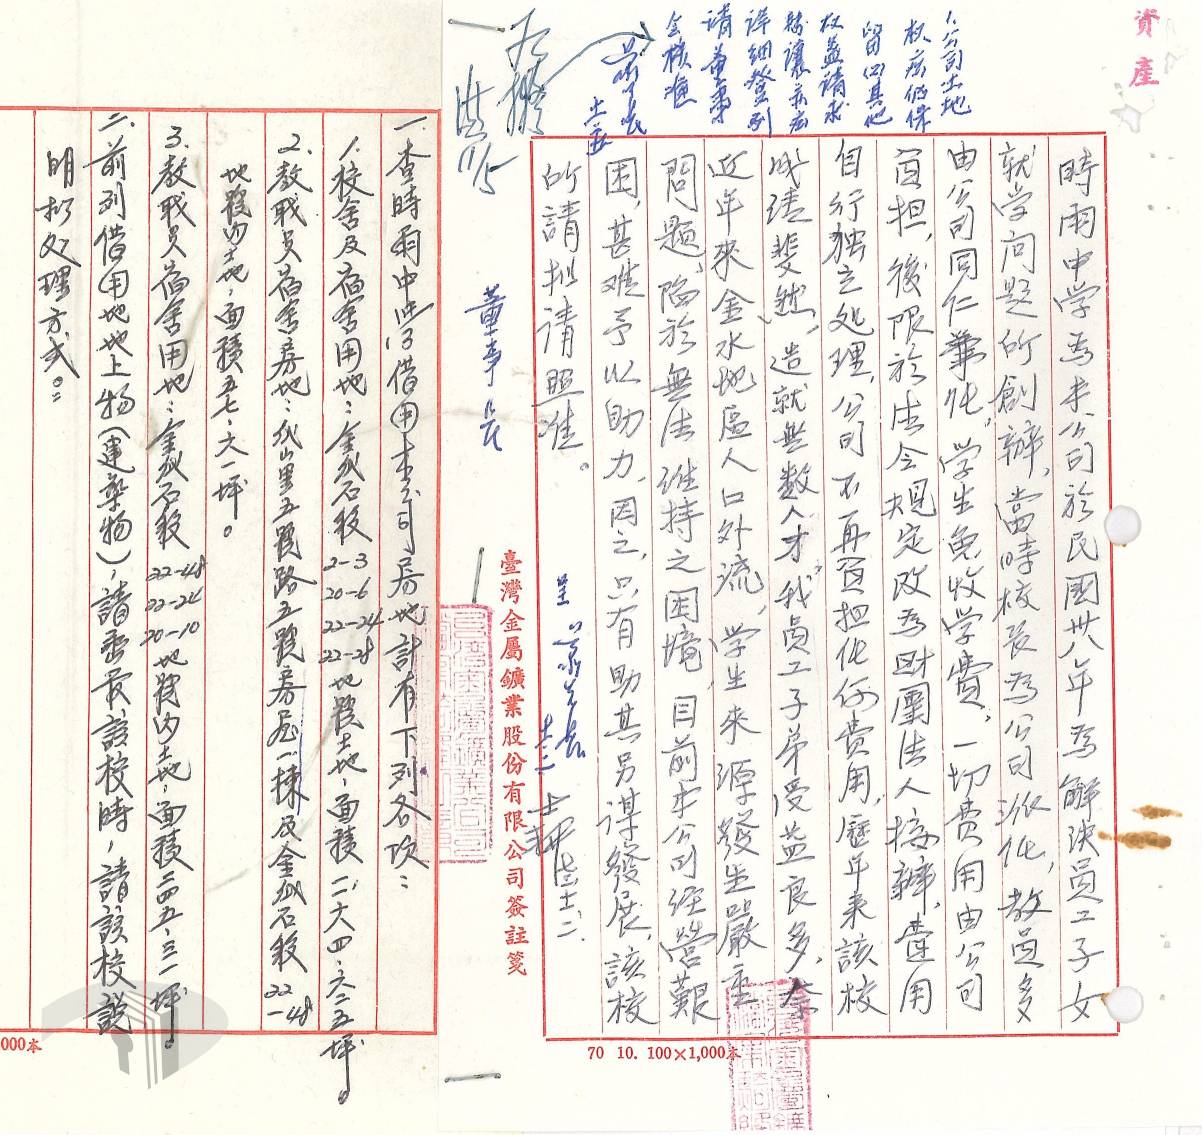 資產
1.公司土地
權應仍保
留(四)其他
權益請求
轉讓亦應
詳細登列
請董事
會核准
十五
時雨中學為本公司於民國卅八年為解決員工子女
就学问题的創辦，當時校長為公司派任，教員多
由公司同仁兼任，学生免收学費，一切費用由公司
負担，後限於法令規定改為財團法人接辦，費用
自行獨立处理，公司不再負担任何費用，歷年來該校
成績斐然，造就無数人才，我員工子弟受益良多，奈
近年來金水地區人口外流，学生來源發生嚴重
問題，陷於無法維持之困境，目前本公司经營艱
困，甚难予以助力，因之，只有助其另謀發展，該校
所請拟请照准。
呈
董事長
臺灣金屬鑛業股份有限公司簽註箋
70 10. 100×1,000本
11/5
一、查時雨中学借用本公司房地計有下列各項：
1.校舍及宿舍用地：金瓜石段 2-3 20-6 22-24 22-28 地號土地，面積一、六四、六二五坪。
2.教職員宿舍房地：瓜山里五號路五號房屋一棟及金瓜石段 22-48
地號內土地，面積五七、六一坪。
3.教職員宿舍用地：金瓜石段 22-48 22-24 20-10 地號內土地，面積二四五、三一坪。
二、前列借用地地上物(建築物)，請查最該校時，請該校說
明拟处理方式。
000本